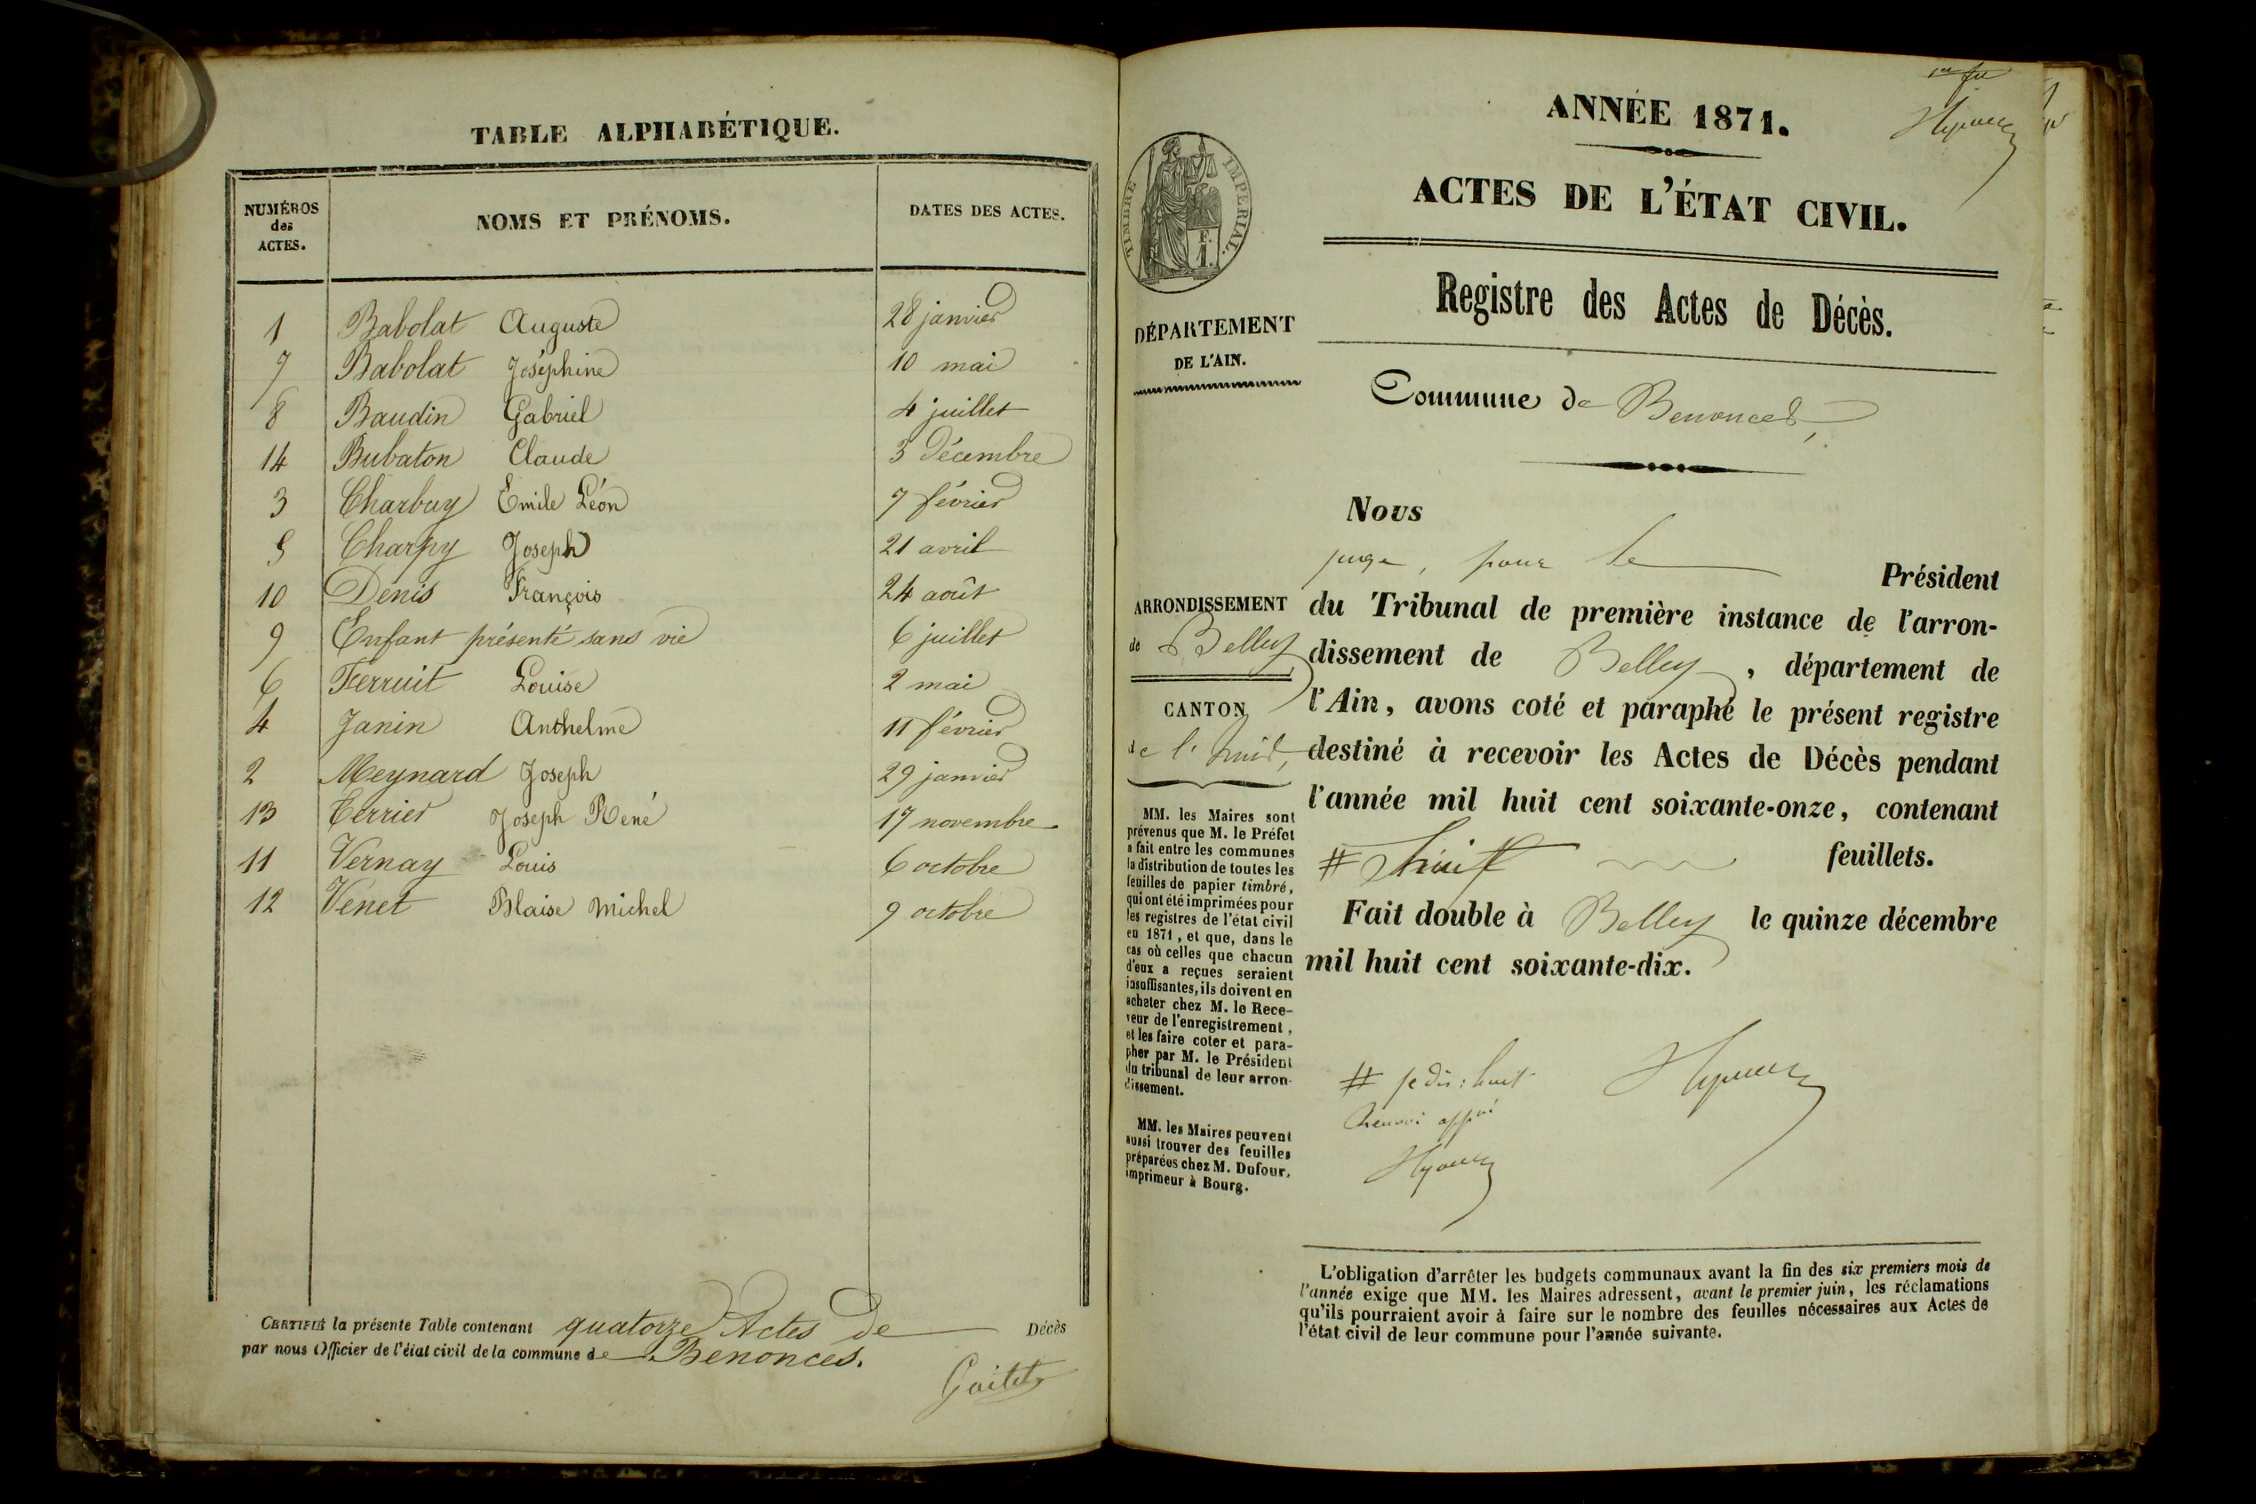 TABLE ALPHABÉTIQUE.
NUMÉROS des ACTES.
NOMS ET PRÉNOMS.
DATES DES ACTES.
1 Babolat Auguste 28 janvier
7 Babolat Joséphine 10 mai
8 Baudin Gabriel 4 juillet
14 Bubaton Claude 3 Décembre
3 Charbuy Emile Léon 7 février
5 Charpy Joseph 21 avril
10 Denis François 24 août
9 Enfant présenté sans vie 6 juillet
6 Ferruit Louise 2 mai
4 Janin Anthelme 11 février
2 Meynard Joseph 29 janvier
13 Terrier Joseph René 17 novembre
11 Vernay Louis 6 octobre
12 Venet Blaise Michel 9 octobre
CERTIFIÉ la présente Table contenant quatorze Actes de Décès
par nous Officier de l'état civil de la commune de Benonces.
ANNÉE 1871.
ACTES DE L'ÉTAT CIVIL.
TIMBRE IMPERIAL.
F.
1.
Registre des Actes de Décès.
DÉPARTEMENT
DE L'AIN.
Commune de Benonces,
Nous
juge, pour le Président
ARRONDISSEMENT
de Belley
CANTON
de l'huis,
du Tribunal de première instance de l'arron-
dissement de Belley, département de
l'Ain, avons coté et paraphé le présent registre
destiné à recevoir les Actes de Décès pendant
l'année mil huit cent soixante-onze, contenant
# huit feuillets.
Fait double à Belley le quinze décembre
mil huit cent soixante-dix.
MM. les Maires sont
prévenus que M. le Préfet
a fait entre les communes
la distribution de toutes les
feuilles de papier timbré,
qui ont été imprimées pour
les registres de l'état civil
en 1871, et que, dans le
cas où celles que chacun
d'eux a reçues seraient
insuffisantes, ils doivent en
acheter chez M. le Rece-
veur de l'enregistrement,
et les faire coter et para-
pher par M. le Président
du tribunal de leur arron-
dissement.
MM. les Maires peuvent
aussi trouver des feuilles
préparées chez M. Dufour,
imprimeur à Bourg.
# je dis : huit
Renvoi appvé
L'obligation d'arrêter les budgets communaux avant la fin des six premiers mois de
l'année exige que MM. les Maires adressent, avant le premier juin, les réclamations
qu'ils pourraient avoir à faire sur le nombre des feuilles nécessaires aux Actes de
l'état civil de leur commune pour l'année suivante.